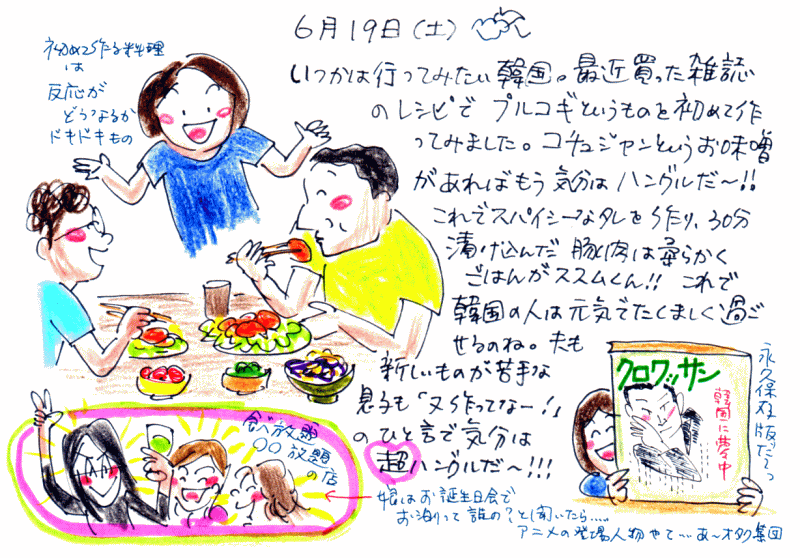 6月19日(土)
初めて作る料理
は
反応が
どうなるか
ドキドキもの
いつかは行ってみたい韓国。最近買った雑誌
のレシピで プルコギというものを初めて作
ってみました。コチュジャンというお味噌
があればもう気分はハングルだ〜!!
これでスパイシーなタレを作り、30分
漬け込んだ豚肉は柔らかく
ごはんがススムくん!! これで
韓国の人は元気でたくましく過ご
せるのね。夫も
新しいものが苦手な
息子も「又作ってなー!」
のひと言で気分は
超ハングルだ〜!!!
クロワッサン
韓国に夢中
永久保存版だそっ
食べ放題
〇〇放題
の店
←娘はお誕生日会で
お泊りって 誰の?と聞いたら.....
アニメの登場人物やて...あ〜オタク集団